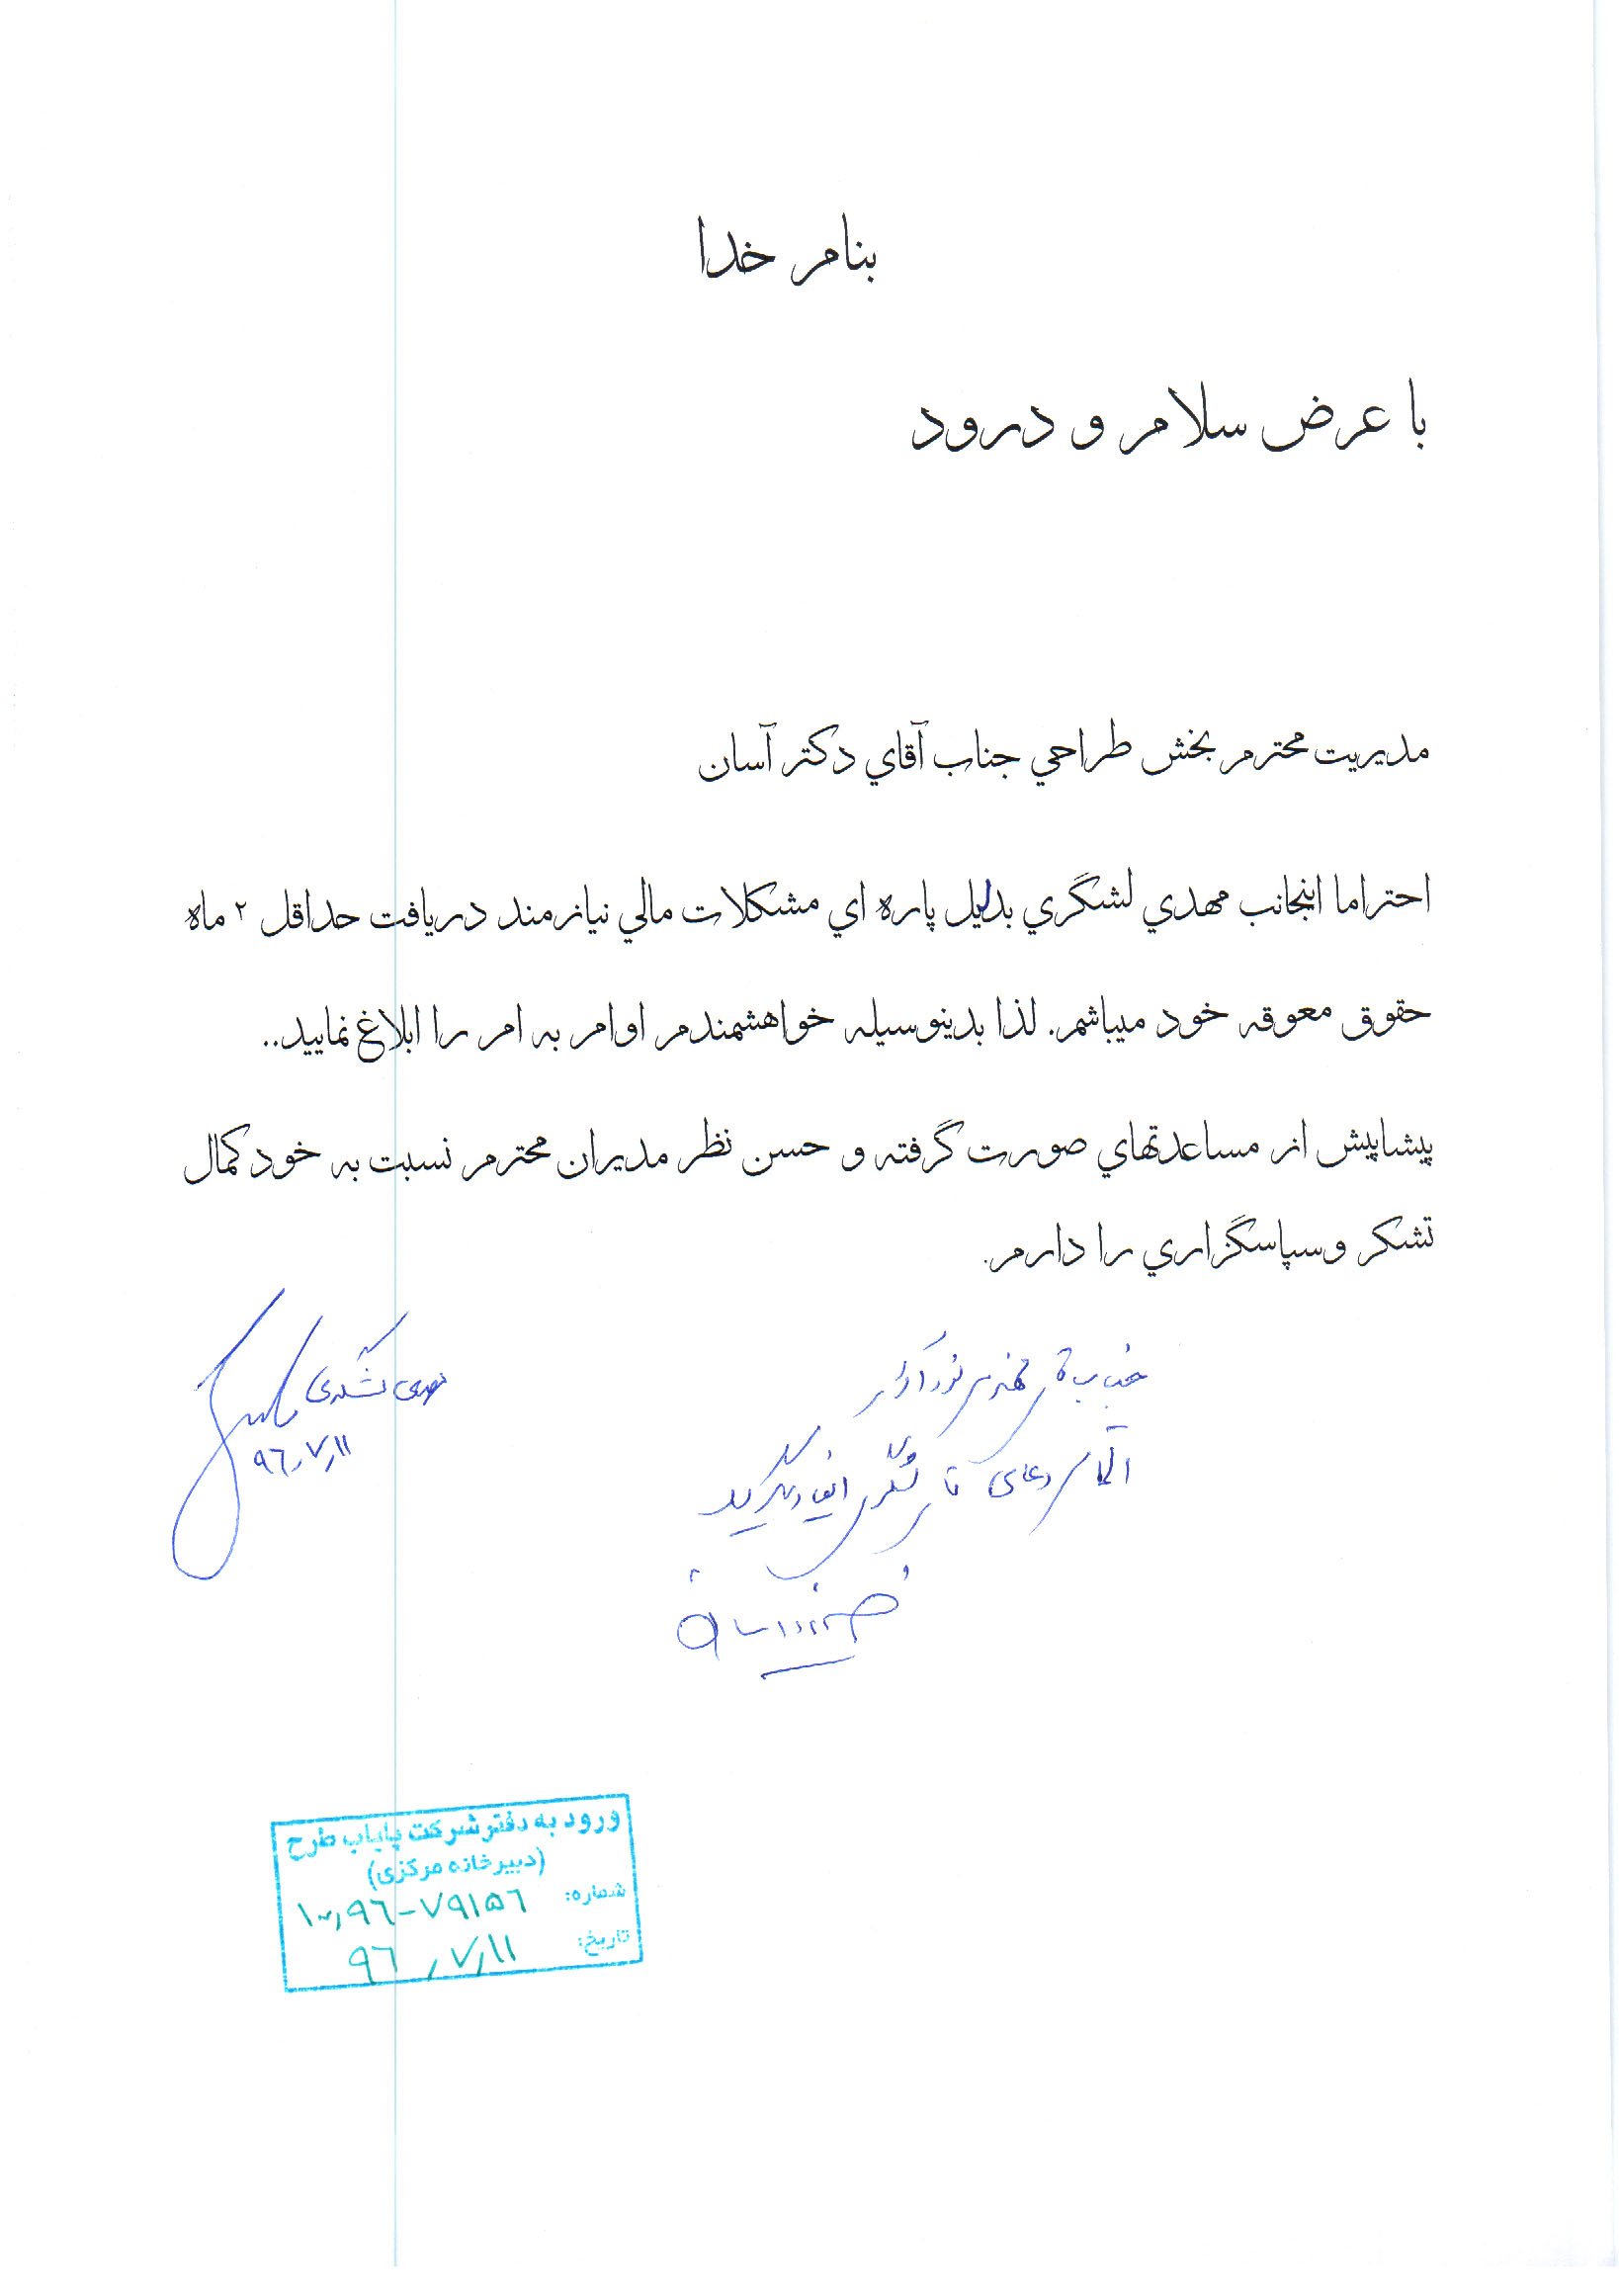 بنام خدا
با عرض سلام و درود
مديريت محترم بخش طراحي جناب آقاي دكتر آسان
احتراما اينجانب مهدي لشگري بدليل پاره اي مشكلات مالي نيازمند دريافت حداقل ۲ ماه
حقوق معوقه خود ميباشم. لذا بدينوسيله خواهشمندم اوامر به امر را ابلاغ نماييد..
پيشاپيش از مساعدتهاي صورت گرفته و حسن نظر مديران محترم نسبت به خود كمال
تشكر وسپاسگزاري را دارم.
مهدی لشگری
۹۶٫۷٫۱۱
ورود به دفتر شرکت پایاب طرح
(دبیرخانه مرکزی)
شماره: ۷۹۱۵۶
تاریخ: ۹۶٫۷٫۱۱